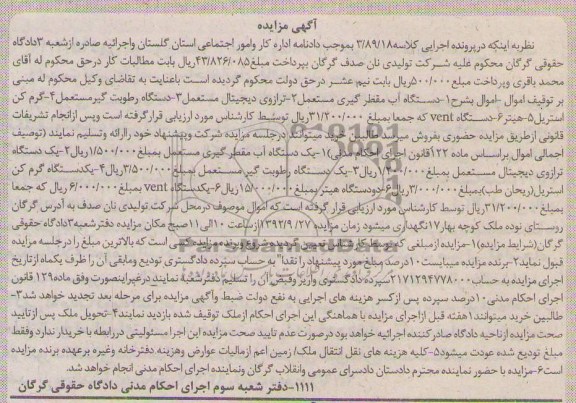 آگهی مزایده
نظربه اینکه درپرونده اجرایی کلاسه ۳/۸۹/۱۸ بموجب دادنامه اداره کار وامور اجتماعی استان گلستان واجرائیه صادره ازشعبه ۳دادگاه
حقوقی گرگان محکوم علیه شرکت تولیدی نان صدف گرگان بپرداخت مبلغ۴۳/۸۲۶/۰۸۵ریال بابت مطالبات کار درحق محکوم له آقای
محمد باقری وپرداخت مبلغ۵۰۰/۰۰۰ریال بابت نیم عشر درحق دولت محکوم گردیده است باعنایت به تقاضای وکیل محکوم له مبنی
بر توقیف اموال -اموال بشرح۱-دستگاه آب مقطر گیری مستعمل۲-ترازوی دیجیتال مستعمل۳-دستگاه رطوبت گیرمستعمل۴-گرم کن
استریل۵-هیتر۶-دستگاه vent که جمعا بمبلغ ۳۱/۲۰۰/۰۰۰ریال توسط کارشناس مورد ارزیابی قرارگرفته است وپس ازانجام تشریفات
قانونی ازطریق مزایده حضوری بفروش میرسد طالبین خرید میتوانند درجلسه مزایده شرکت وپیشنهاد خود راارائه وتسلیم نمایند (توصیف
اجمالی اموال براساس ماده ۱۲۲قانون اجرای احکام مدنی)۱-یک دستگاه آب مقطر گیری مستعمل بمبلغ۱/۵۰۰/۰۰۰ریال۲-یک دستگاه
ترازوی دیجیتال مستعمل بمبلغ ریال۳-یک دستگاه رطوبت گیر مستعمل بمبلغ۳/۵۰۰/۰۰۰ریال۴-یکدستگاه گرم کن
استریل(ریحان طب)بمبلغ۳/۰۰۰/۰۰۰ریال۵-دودستگاه هیتر بمبلغ۱۵/۰۰۰/۰۰۰ریال۶-یکدستگاه vent بمبلغ۶/۰۰۰/۰۰۰ ریال که جمعا
بمبلغ۳۱/۲۰۰/۰۰۰ریال توسط کارشناس مورد ارزیابی قرار گرفته است که اموال موصوف درمحل شرکت تولیدی نان صدف به آدرس گرگان
روستای نوده ملک کوچه بهار۱۷نگهداری میشود زمان مزایده ۱۳۹۲/۹/۲۷ازساعت ۱۰الی۱۱صبح مکان مزایده دفترشعبه۳دادگاه حقوقی
گرگان(شرایط مزایده)۱-مزایده ازمبلغی که توسط کارشناس تعیین گردیده شروع وبرنده مزایده کسی است که بالاترین مبلغ را درجلسه مزایده
قبول نماید۲-برنده مزایده میبایست۱۰درصد مبلغ مورد پیشنهاد را نقدا" به حساب سپرده دادگستری تودیع ومابقی آن را ظرف یکماه ازتاریخ
اجرای مزایده به حساب۲۱۷۱۲۹۴۷۷۸۰۰۰سپرده دادگستری واریز وفیش آن را تسلیم دفترشعبه نمایند درغیراینصورت وفق ماده۱۲۹ قانون
اجرای احکام مدنی۱۰درصد سپرده پس ازکسر هزینه های اجرایی به نفع دولت ضبط وآگهی مزایده برای مرحله بعد تجدید خواهد شد۳-
طالبین خرید میتوانند۱هفته قبل ازاجرای مزایده با هماهنگی این اجرای احکام ازملک توقیف شده بازدید نمایند۴-تحویل ملک پس ازتایید
صحت مزایده ازناحیه دادگاه صادرکننده اجرائیه خواهد بود درصورت عدم تایید صحت مزایده این اجرا مسئولیتی دررابطه با خریدار ندارد وفقط
مبلغ تودیع شده عودت میشود۵-کلیه هزینه های نقل انتقال ملک/ زمین اعم ازمالیات عوارض وهزینه دفترخانه وغیره برعهده برنده مزایده
است۶-مزایده با حضور نماینده محترم دادستان دادسرای عمومی وانقلاب گرگان ونماینده اجرای احکام مدنی انجام خواهد شد.
۱۱۱۱-دفتر شعبه سوم اجرای احکام مدنی دادگاه حقوقی گرگان